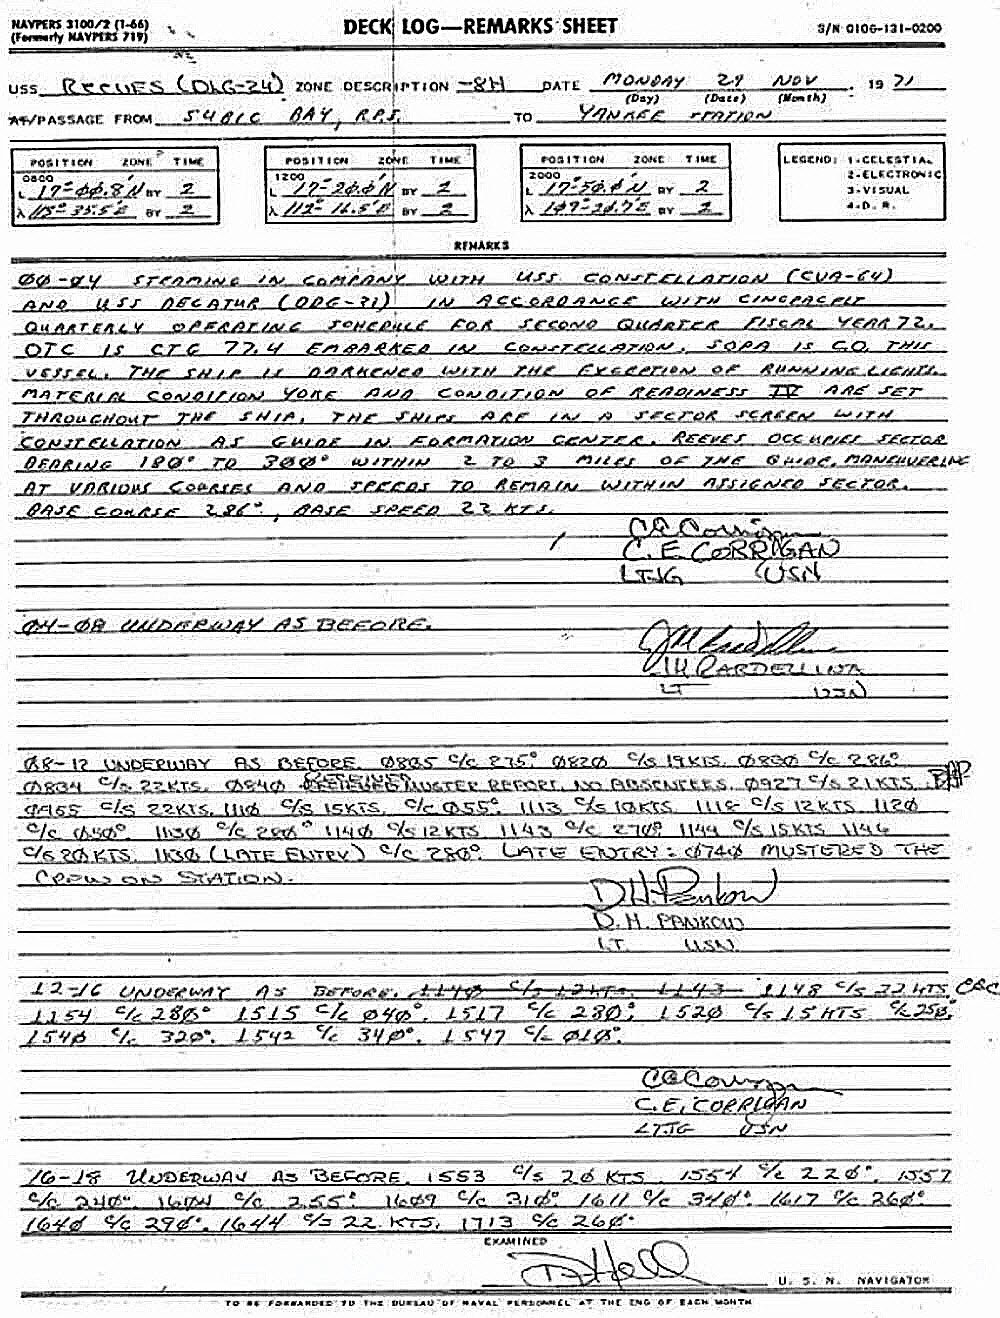 NAVPERS 3100/2 (1-66)
(Formerly NAVPERS 719)
DECK LOG—REMARKS SHEET
S/N 0106-131-0200
USS REEVES (DLG-24) ZONE DESCRIPTION -8H DATE MONDAY 29 NOV 1971
(Day) (Date) (Month)
AT/PASSAGE FROM SUBIC BAY, R.P.I. TO YANKEE STATION
POSITION ZONE TIME
0800
L 17°-00.8'N BY 2
λ 115°-35.5'E BY 2
POSITION ZONE TIME
1200
L 17°-20.0'N BY 2
λ 112°-16.5'E BY 2
POSITION ZONE TIME
2000
L 17°-50.0'N BY 2
λ 109°-20.7'E BY 2
LEGEND: 1-CELESTIAL
2-ELECTRONIC
3-VISUAL
4-D. R.
REMARKS
00-04 STEAMING IN COMPANY WITH USS CONSTELLATION (CVA-64)
AND USS DECATUR (DDG-31) IN ACCORDANCE WITH CINCPACFLT
QUARTERLY OPERATING SCHEDULE FOR SECOND QUARTER FISCAL YEAR 72.
OTC IS CTG 77.4 EMBARKED IN CONSTELLATION. SOPA IS C.O. THIS
VESSEL. THE SHIP IS DARKENED WITH THE EXCEPTION OF RUNNING LIGHTS.
MATERIAL CONDITION YOKE AND CONDITION OF READINESS IV ARE SET
THROUGHOUT THE SHIP. THE SHIPS ARE IN A SECTOR SCREEN WITH
CONSTELLATION AS GUIDE IN FORMATION CENTER. REEVES OCCUPIES SECTOR
BEARING 180° TO 300° WITHIN 2 TO 3 MILES OF THE GUIDE, MANEUVERING
AT VARIOUS COURSES AND SPEEDS TO REMAIN WITHIN ASSIGNED SECTOR.
BASE COURSE 286°, BASE SPEED 22 KTS.
C E Corrigan
C. E. CORRIGAN
LTJG USN
04-08 UNDERWAY AS BEFORE.
LT USN
08-12 UNDERWAY AS BEFORE. 0805 C/C 275° 0820 C/S 19KTS. 0830 C/C 286°
0834 C/S 22KTS. 0840 RECEIVED MUSTER REPORT, NO ABSENTEES. 0927 C/S 21KTS.
0955 C/S 22KTS. 1110 C/S 15KTS. C/C 055°. 1113 C/S 10KTS. 1118 C/S 12KTS 1120
C/C 050°. 1130 C/C 280° 1140 C/S 12KTS 1143 C/C 270° 1144 C/S 15KTS 1146
C/S 20KTS. 1130 (LATE ENTRY) C/C 280°. LATE ENTRY: 0740 MUSTERED THE
CREW ON STATION.
D.H. Pankow
D. H. PANKOW
LT. USN
12-16 UNDERWAY AS BEFORE. 1140 C/S 12KTS. 1143 1148 C/S 22 KTS. CEC
1154 C/C 280° 1515 C/C 040°. 1517 C/C 230°. 1520 C/S 15 KTS C/C 250°.
1540 C/C 320°. 1542 C/C 340°. 1547 C/C 010°.
C E Corrigan
C. E. CORRIGAN
LTJG USN
16-18 UNDERWAY AS BEFORE. 1553 C/S 20 KTS. 1554 C/C 220°. 1557
C/C 240°. 1604 C/C 255° 1609 C/C 310°. 1611 C/C 340°. 1617 C/C 260°.
1640 C/C 290°. 1644 C/S 22 KTS. 1713 C/C 260°.
EXAMINED
U. S. N. NAVIGATOR
TO BE FORWARDED TO THE BUREAU OF NAVAL PERSONNEL AT THE END OF EACH MONTH